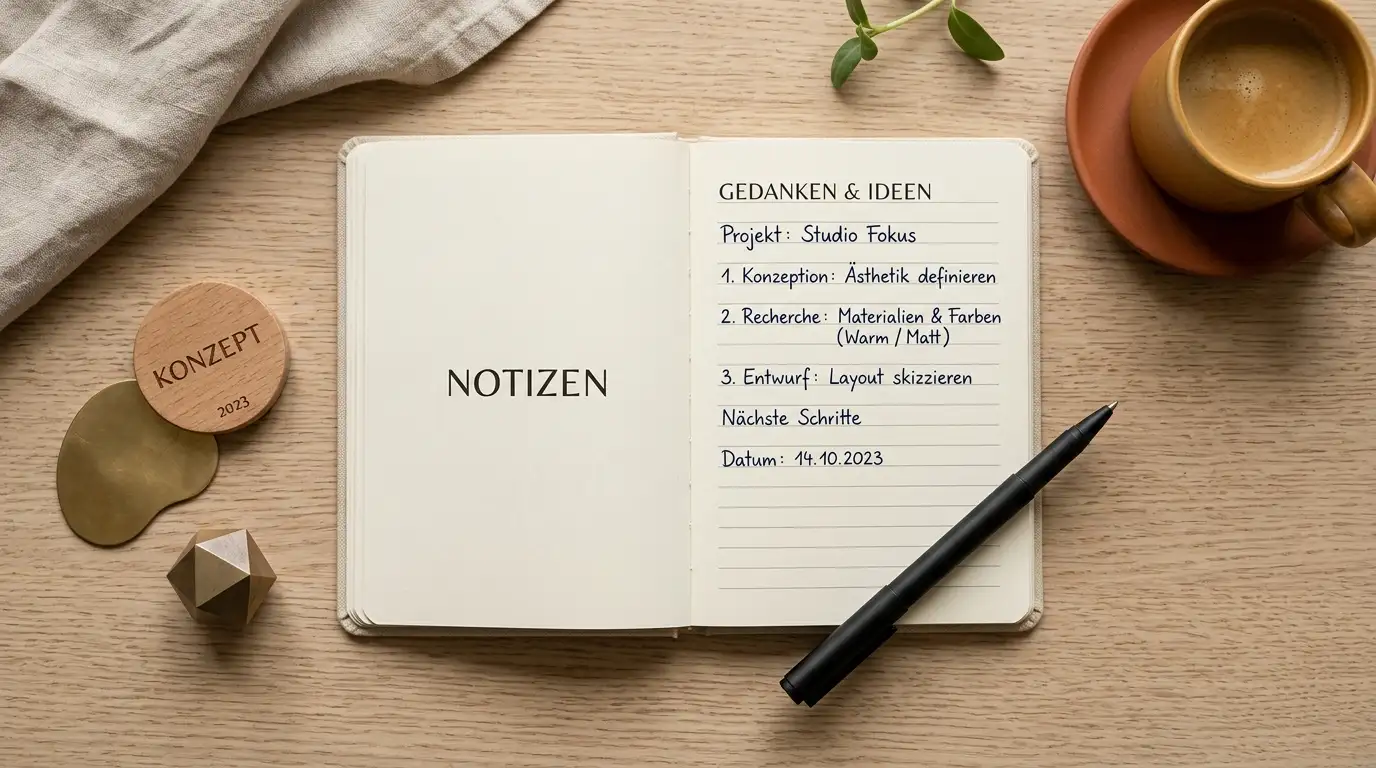 KONZEPT
2023
NOTIZEN
GEDANKEN & IDEEN
Projekt: Studio Fokus
1. Konzeption: Ästhetik definieren
2. Recherche: Materialien & Farben
(Warm / Matt)
3. Entwurf: Layout skizzieren
Nächste Schritte
Datum: 14.10.2023